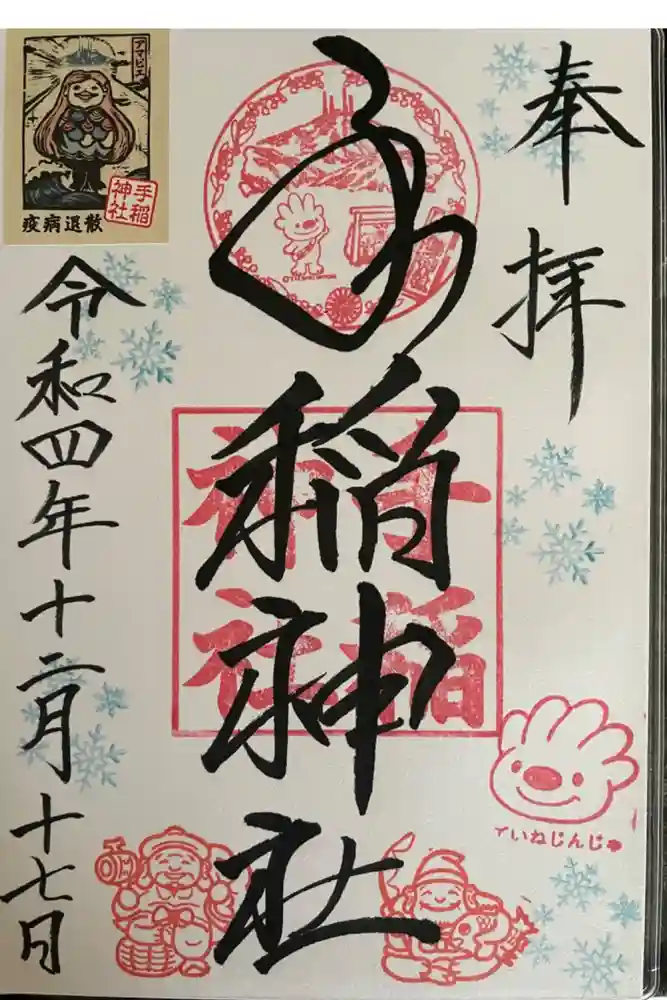 奉拝
手稲神社
手稲神社
アマビエ
疫病退散
手稲神社
令和四年十二月十七日
ていねじんじゃ